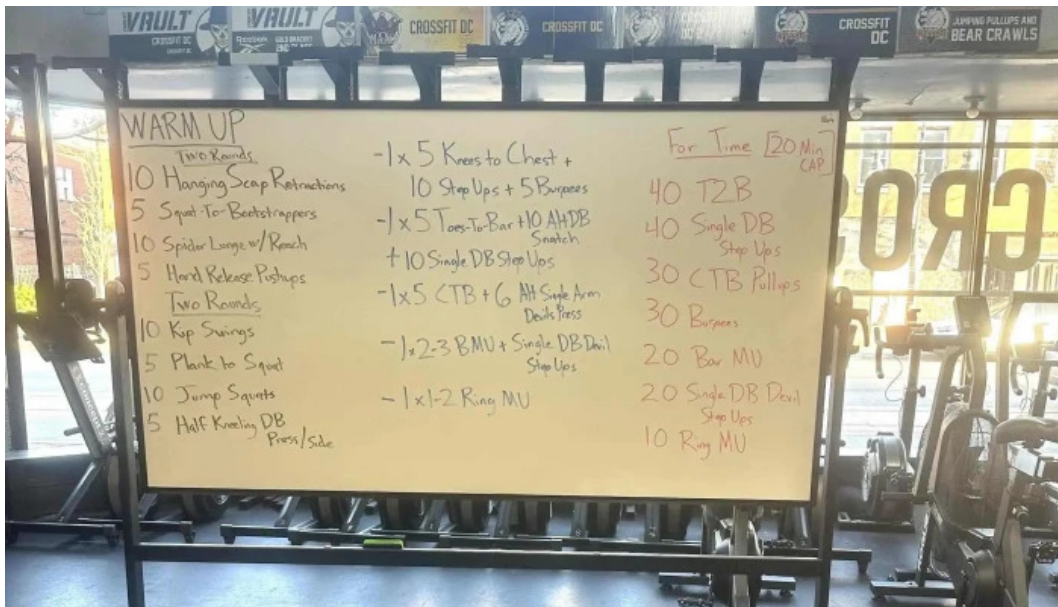 VAULT
CROSSFIT DC
VAULT
Reebok
CROSSFIT DC
CROSSFIT DC
CROSSFIT
DC
JUMPING PULLUPS AND
BEAR CRAWLS
WARM UP
Two Rounds
10 Hanging Scap Retractions
5 Squat-To-Bootstrappers
10 Spider Lunge w/ Reach
5 Hand Release Pushups
Two Rounds
10 Kip Swings
5 Plank to Squat
10 Jump Squats
5 Half Kneeling DB
Press/Side
-1 x 5 Knees to Chest +
10 Step Ups + 5 Burpees
-1 x 5 Toes-To-Bar + 10 Alt DB
Snatch
+ 10 Single DB Step Ups
-1 x 5 CTB + 6 Alt Single Arm
Devils Press
-1 x 2-3 BMU + Single DB Devil
Step Ups
-1 x 1-2 Ring MU
For Time [20 Min
CAP]
40 T2B
40 Single DB
Step Ups
30 CTB Pullups
30 Burpees
20 Bar MU
20 Single DB Devil
Step Ups
10 Ring MU
GRO